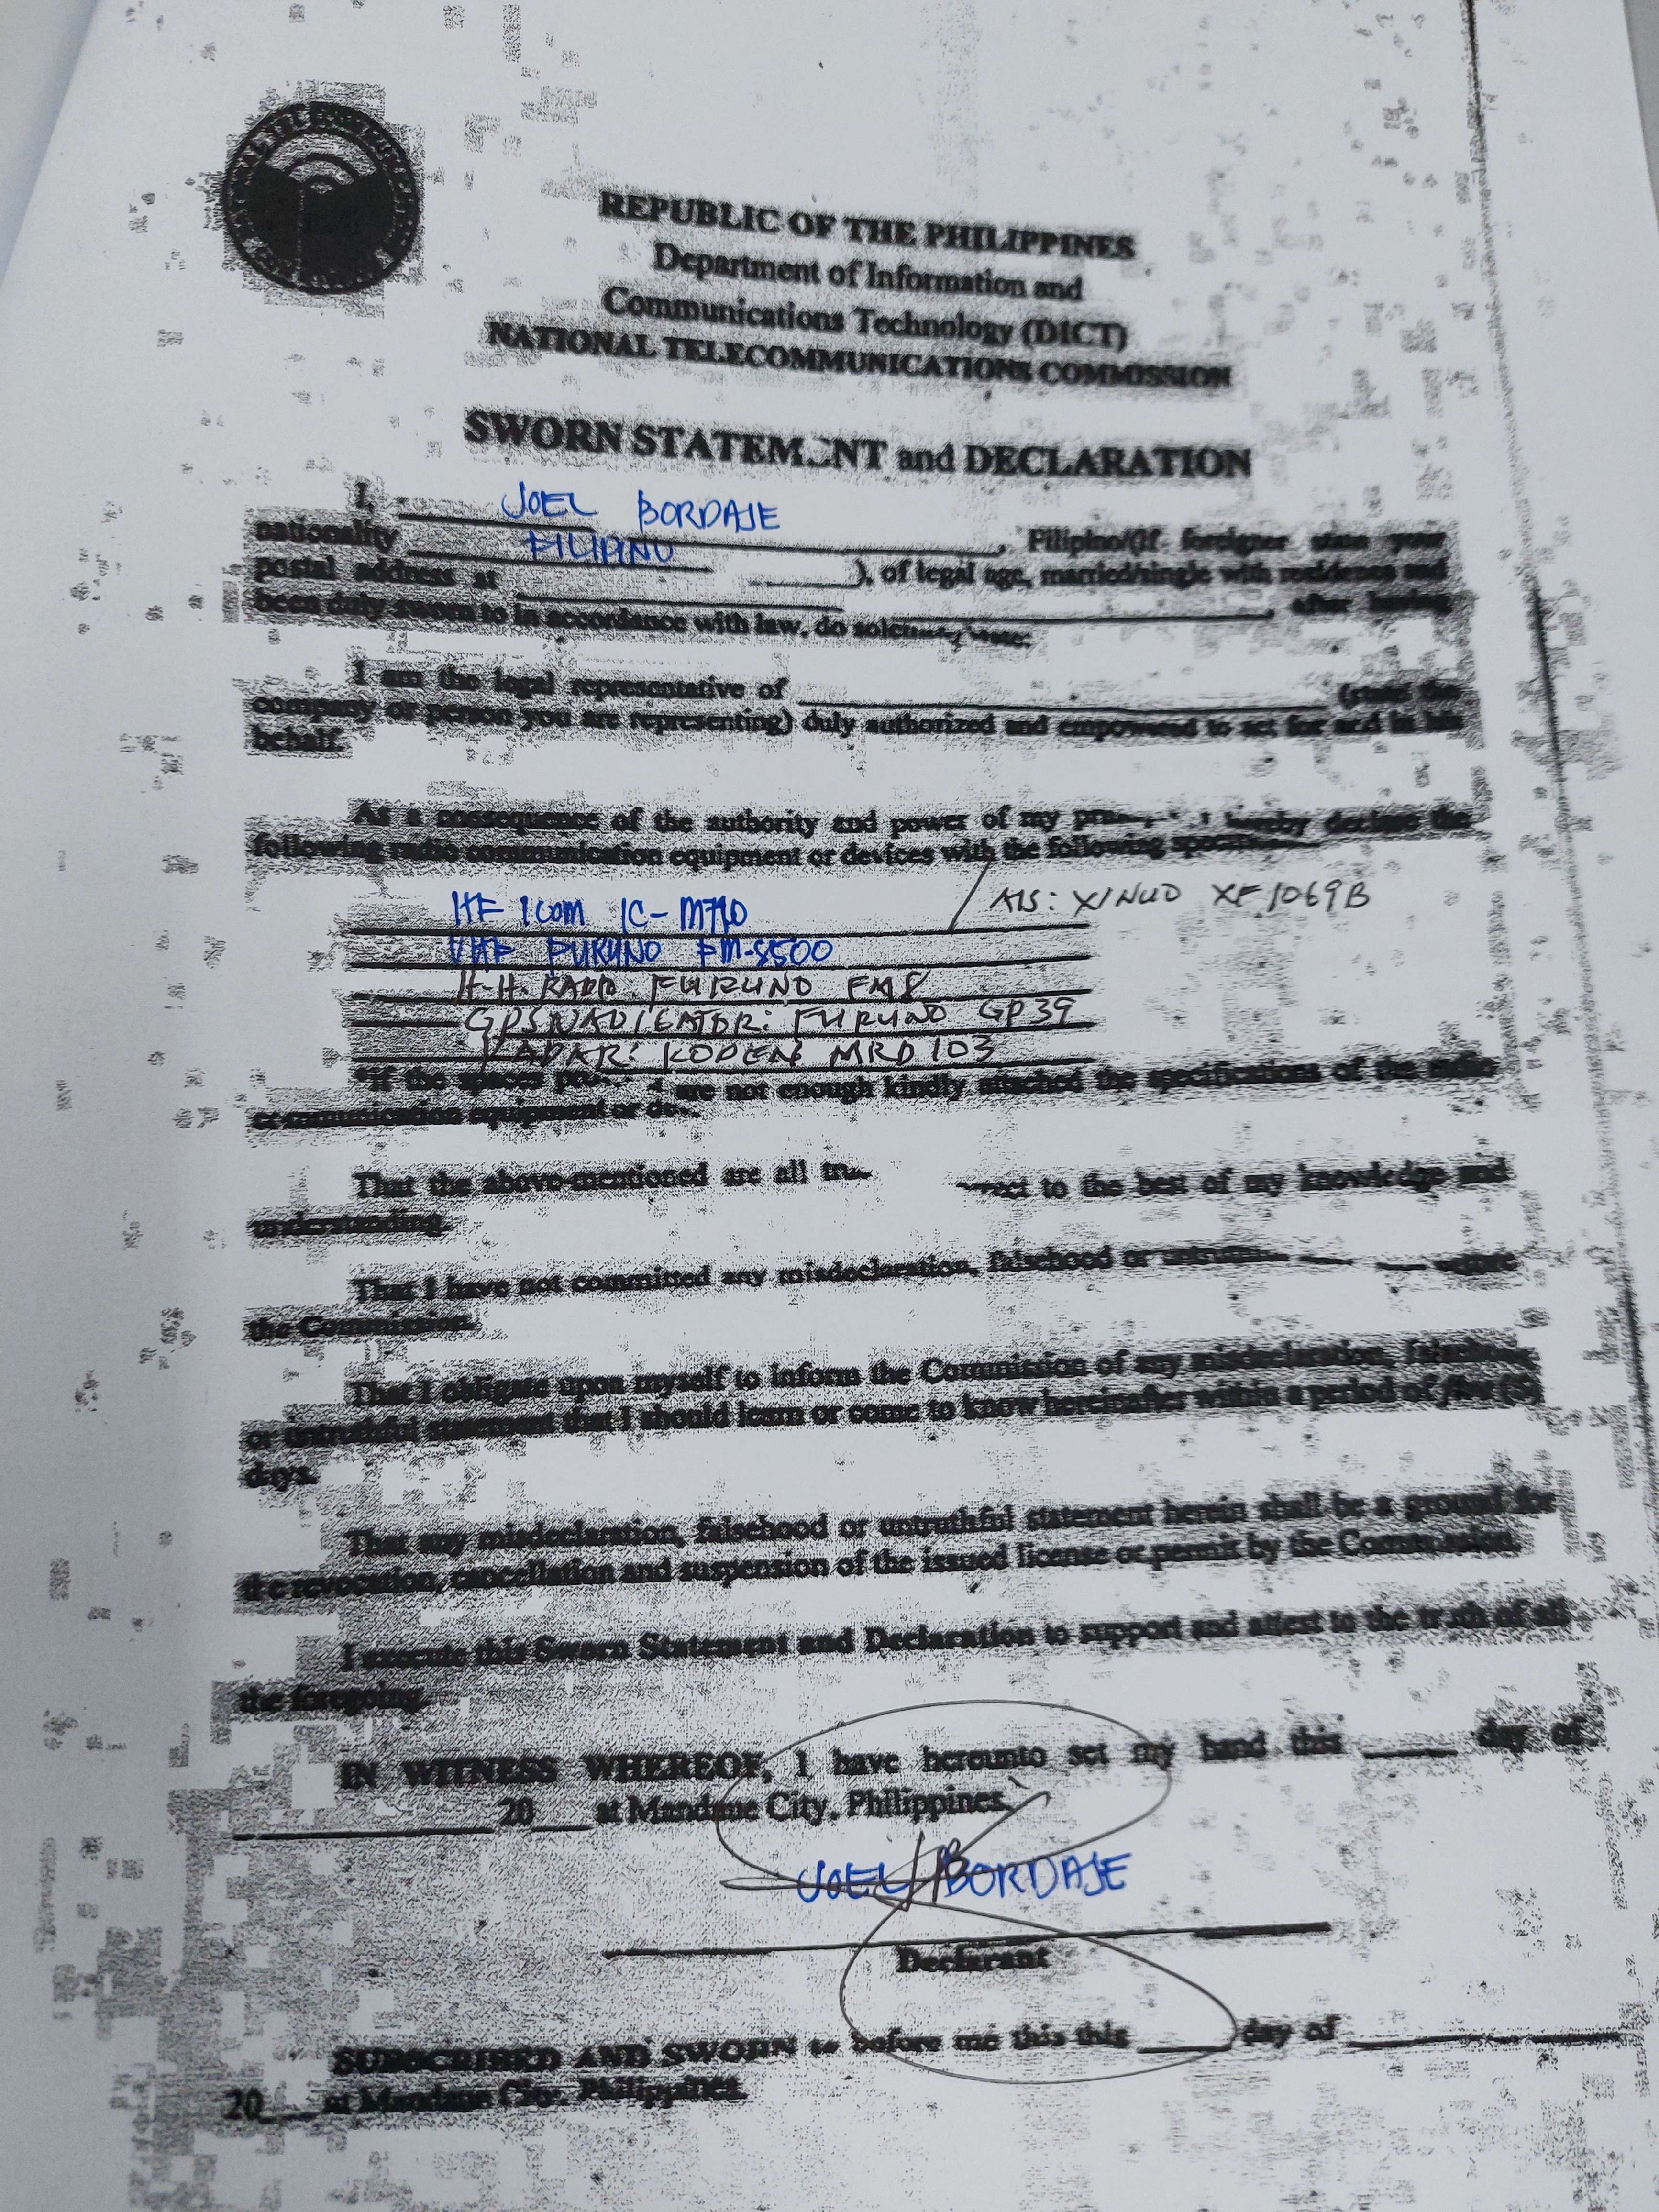 REPUBLIC OF THE PHILIPPINES
Department of Information and
Communications Technology (DICT)
NATIONAL TELECOMMUNICATIONS COMMISSION
SWORN STATEM NT and DECLARATION
I, JOEL BORDAJE
nationality FILIPINO, Filipino/(If foreigner state your
postal address at ), of legal age, married/single with residence and
been duly sworn to in accordance with law, do , after having
I am the legal representative of (state the
company or person you are representing) duly authorized and empowered to act for and in his
behalf.
As a consequence of the authority and power of my hereby declare the
following radio communication equipment or devices with the following
HF ICOM IC-M710 / AIS: XINUO XF1069B
VHF FURUNO FM-8500
H.H. RADIO FURUNO FM8
GPS NAVIGATOR: FURUNO GP39
RADAR: KODEN MRD103
*If the spaces are not enough kindly attached the specifications of the radio
communication equipment or
That the above-mentioned are all to the best of my knowledge and
understanding.
That I have not committed any misdeclaration, falsehood or
the Commission.
That I obligate upon myself to inform the Commission of any misdeclaration, falsehood,
or untruthful statement that I should learn or come to know hereinafter within a period of five (5)
days.
That any misdeclaration, falsehood or untruthful statement herein shall be a ground for
the revocation, cancellation and suspension of the issued license or permit by the Commission.
I execute this Sworn Statement and Declaration to support and attest to the truth of all
the foregoing.
IN WITNESS WHEREOF, I have hereunto set my hand this ____ day of
____ 20__ at Mandaue City, Philippines.
JOEL BORDAJE
Declarant
SUBSCRIBED AND SWORN to before me this this ____ day of ____
20__ at Mandaue City, Philippines.